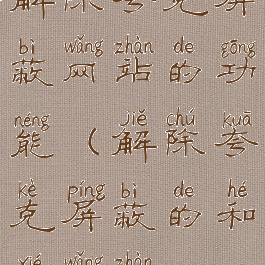 解除夸克屏
bì wǎng zhàn de gōng
蔽网站的功
néng jiě chú kuā
能（解除夸
kè píng bì de hé
克屏蔽的和
xié wǎng zhàn